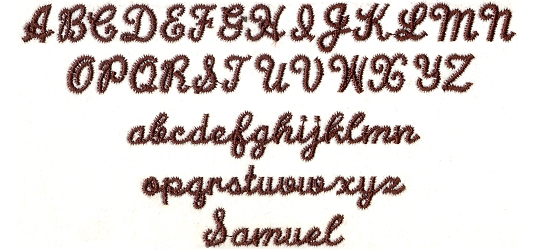 ABCDEFGHIJKLMN
OPQRSTUVWXYZ
abcdefghijklmn
opqrstuvwxyz
Samuel